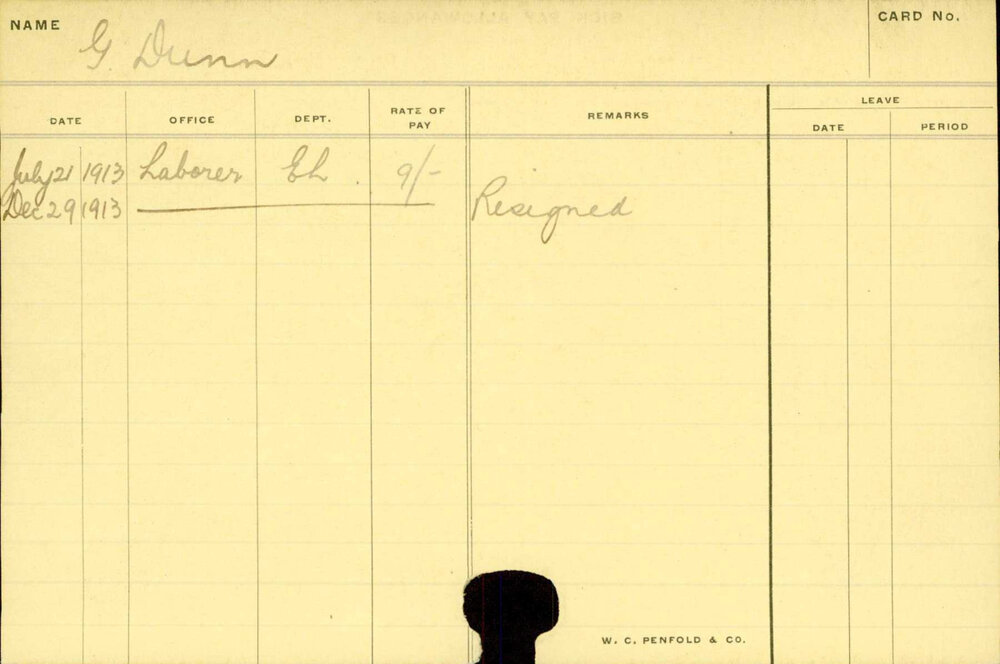 NAME G. Dunn CARD No.
DATE OFFICE DEPT. RATE OF PAY REMARKS LEAVE
DATE PERIOD
July 21 1913 Laborer EL. 9/-
Dec 29 1913 Resigned
W. C. PENFOLD & CO.